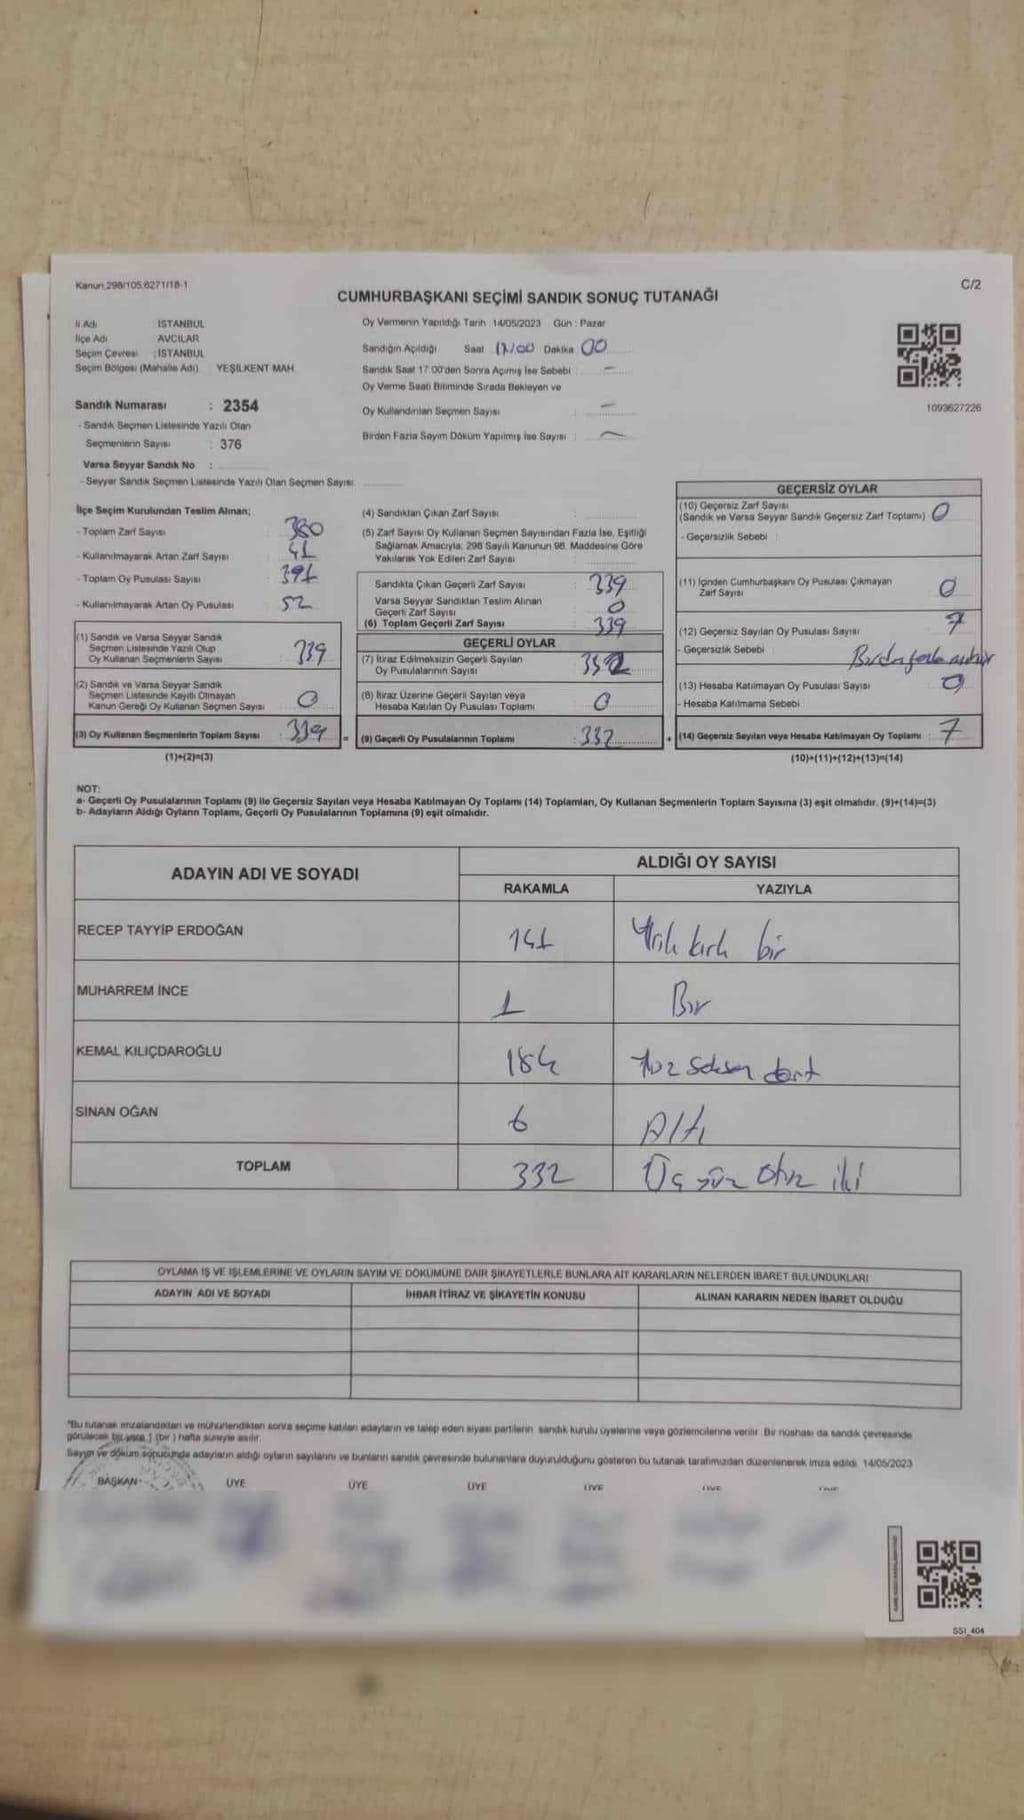 Kanun.298/105,6271/18-1
C/2
CUMHURBAŞKANI SEÇİMİ SANDIK SONUÇ TUTANAĞI
İl Adı İSTANBUL
İlçe Adı AVCILAR
Seçim Çevresi : İSTANBUL
Seçim Bölgesi (Mahalle Adı) YEŞİLKENT MAH.
Sandık Numarası : 2354
- Sandık Seçmen Listesinde Yazılı Olan
Seçmenlerin Sayısı : 376
Varsa Seyyar Sandık No :
- Seyyar Sandık Seçmen Listesinde Yazılı Olan Seçmen Sayısı:
Oy Vermenin Yapıldığı Tarih : 14/05/2023 Gün : Pazar
Sandığın Açıldığı Saat Dakika 00
Sandık Saat 17:00'den Sonra Açılmış İse Sebebi : -
Oy Verme Saati Bitiminde Sırada Bekleyen ve
Oy Kullandırılan Seçmen Sayısı : -
Birden Fazla Sayım Döküm Yapılmış İse Sayısı : -
1093627226
İlçe Seçim Kurulundan Teslim Alınan;
- Toplam Zarf Sayısı : 380
- Kullanılmayarak Artan Zarf Sayısı : 41
- Toplam Oy Pusulası Sayısı : 391
- Kullanılmayarak Artan Oy Pusulası : 52
(1) Sandık ve Varsa Seyyar Sandık
Seçmen Listesinde Yazılı Olup
Oy Kullanan Seçmenlerin Sayısı : 339
(2) Sandık ve Varsa Seyyar Sandık
Seçmen Listesinde Kayıtlı Olmayan
Kanun Gereği Oy Kullanan Seçmen Sayısı : 0
(3) Oy Kullanan Seçmenlerin Toplam Sayısı : 339
(1)+(2)=(3)
(4) Sandıktan Çıkan Zarf Sayısı :
(5) Zarf Sayısı Oy Kullanan Seçmen Sayısından Fazla İse, Eşitliği
Sağlamak Amacıyla; 298 Sayılı Kanunun 98. Maddesine Göre
Yakılarak Yok Edilen Zarf Sayısı :
Sandıkta Çıkan Geçerli Zarf Sayısı : 339
Varsa Seyyar Sandıktan Teslim Alınan
Geçerli Zarf Sayısı : 0
(6) Toplam Geçerli Zarf Sayısı : 339
GEÇERLİ OYLAR
(7) İtiraz Edilmeksizin Geçerli Sayılan
Oy Pusulalarının Sayısı : 332
(8) İtiraz Üzerine Geçerli Sayılan veya
Hesaba Katılan Oy Pusulası Toplamı : 0
= (9) Geçerli Oy Pusulalarının Toplamı : 332
GEÇERSİZ OYLAR
(10) Geçersiz Zarf Sayısı
(Sandık ve Varsa Seyyar Sandık Geçersiz Zarf Toplamı) : 0
- Geçersizlik Sebebi :
(11) İçinden Cumhurbaşkanı Oy Pusulası Çıkmayan
Zarf Sayısı : 0
(12) Geçersiz Sayılan Oy Pusulası Sayısı : 7
- Geçersizlik Sebebi : Birden fazla mühür
(13) Hesaba Katılmayan Oy Pusulası Sayısı : 0
- Hesaba Katılmama Sebebi :
+ (14) Geçersiz Sayılan veya Hesaba Katılmayan Oy Toplamı : 7
(10)+(11)+(12)+(13)=(14)
NOT:
a- Geçerli Oy Pusulalarının Toplamı (9) ile Geçersiz Sayılan veya Hesaba Katılmayan Oy Toplamı (14) Toplamları, Oy Kullanan Seçmenlerin Toplam Sayısına (3) eşit olmalıdır. (9)+(14)=(3)
b- Adayların Aldığı Oyların Toplamı, Geçerli Oy Pusulalarının Toplamına (9) eşit olmalıdır.
ADAYIN ADI VE SOYADI
ALDIĞI OY SAYISI
RAKAMLA YAZIYLA
RECEP TAYYİP ERDOĞAN 141 Yüz kırk bir
MUHARREM İNCE 1 Bir
KEMAL KILIÇDAROĞLU 184 Yüz seksen dört
SİNAN OĞAN 6 Altı
TOPLAM 332 Üç yüz otuz iki
OYLAMA İŞ VE İŞLEMLERİNE VE OYLARIN SAYIM VE DÖKÜMÜNE DAİR ŞİKAYETLERLE BUNLARA AİT KARARLARIN NELERDEN İBARET BULUNDUKLARI
ADAYIN ADI VE SOYADI İHBAR İTİRAZ VE ŞİKAYETİN KONUSU ALINAN KARARIN NEDEN İBARET OLDUĞU
"Bu tutanak imzalandıktan ve mühürlendikten sonra seçime katılan adayların ve talep eden siyasi partilerin sandık kurulu üyelerine veya gözlemcilerine verilir. Bir nüshası da sandık çevresinde
görülecek bir yere 1 (bir) hafta süreyle asılır.
Sayım ve döküm sonucunda adayların aldığı oyların sayılarını ve bunların sandık çevresinde bulunanlara duyurulduğunu gösteren bu tutanak tarafımızdan düzenlenerek imza edildi. 14/05/2023
BAŞKAN ÜYE ÜYE ÜYE ÜYE ÜYE ÜYE
SSI_404